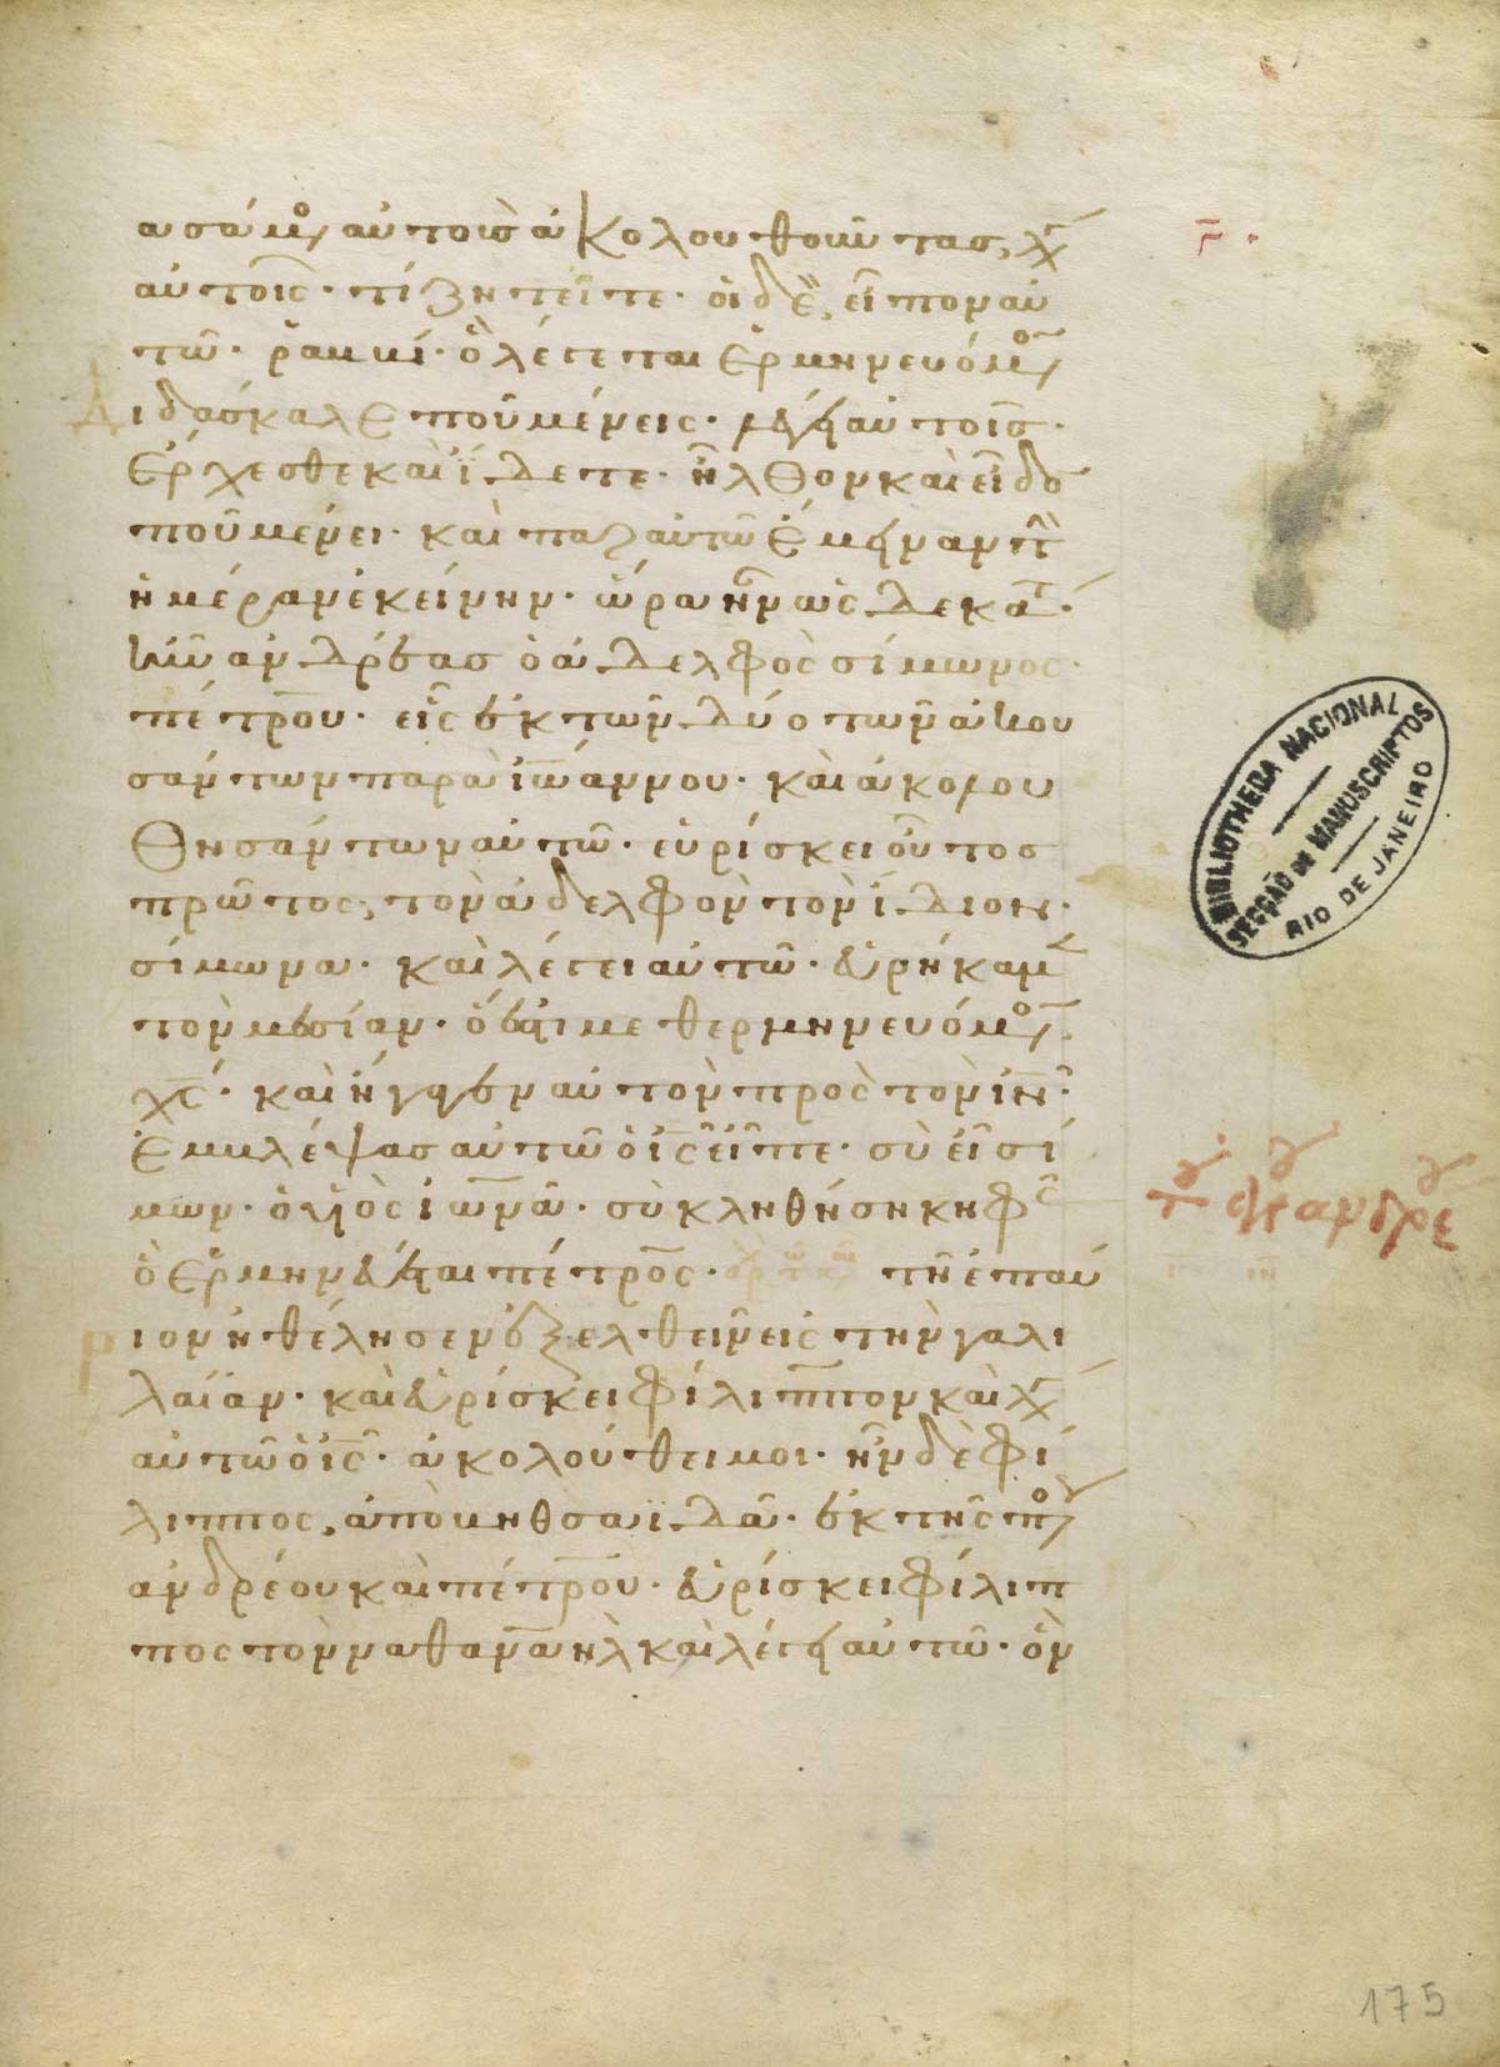 ασάμ͂ αὐτοὺσ ἀκολουθοῦντασ, λ
αὐτοῖς· τί ζητεῖτε· οἱ δὲ, εἶπον αὐ
τῶ· ῥαββί· ὃ λέγεται ἑρμηνευόμ
Διδάσκαλε ποῦ μένεις· λέγει αὐτοῖσ·
ἔρχεσθε καὶ ἴδετε· ἦλθον καὶ εἶδο
ποῦ μένει· καὶ παρ αὐτῶ ἔμειναν τὴ
ἡμέραν ἐκείνην· ὥρα ἦν ὡς δεκα·
ἦν ἀνδρέασ ὁ ἀδελφὸς σίμωνος
πέτρου· εἷς ἐκ τῶν δύο τῶν ἀκου
σάντων παρὰ ἰωάννου· καὶ ἀκολου
θησάντων αὐτῶ· εὑρίσκει οὗτοσ
πρῶτος, τὸν ἀδελφὸν τὸν ἴδιον·
σίμωνα· καὶ λέγει αὐτῶ· εὑρήκαμ
τὸν μεσίαν· ὅ ἐστι μεθερμηνευόμ
χς· καὶ ἤγαγεν αὐτὸν πρὸς τὸν ιν·
ἐμβλέψασ αὐτῶ ὁ ις εἶπε· σὺ εἶ σί
μων· ὁ υἱὸς ἰωνᾶ· σὺ κληθήση κηφς
ὃ ἑρμηνεύεται πέτρος· τῆ ἐπαύ
ριον ἠθέλησεν ἐξελθεῖν εἰς τὴν γαλι
λαίαν· καὶ εὑρίσκει φίλιππον καὶ λ
αὐτῶ ὁ ις· ἀκολούθει μοι· ἦν δὲ φί
λιππος, ἀπὸ βηθσαϊδᾶ· ἐκ τῆς πο
ἀνδρέου καὶ πέτρου· εὑρίσκει φίλιπ
πος τὸν ναθαναὴλ καὶ λέγει αὐτῶ· ὃν
BIBLIOTHECA NACIONAL
SECÇÃO DE MANUSCRIPTOS
RIO DE JANEIRO
175